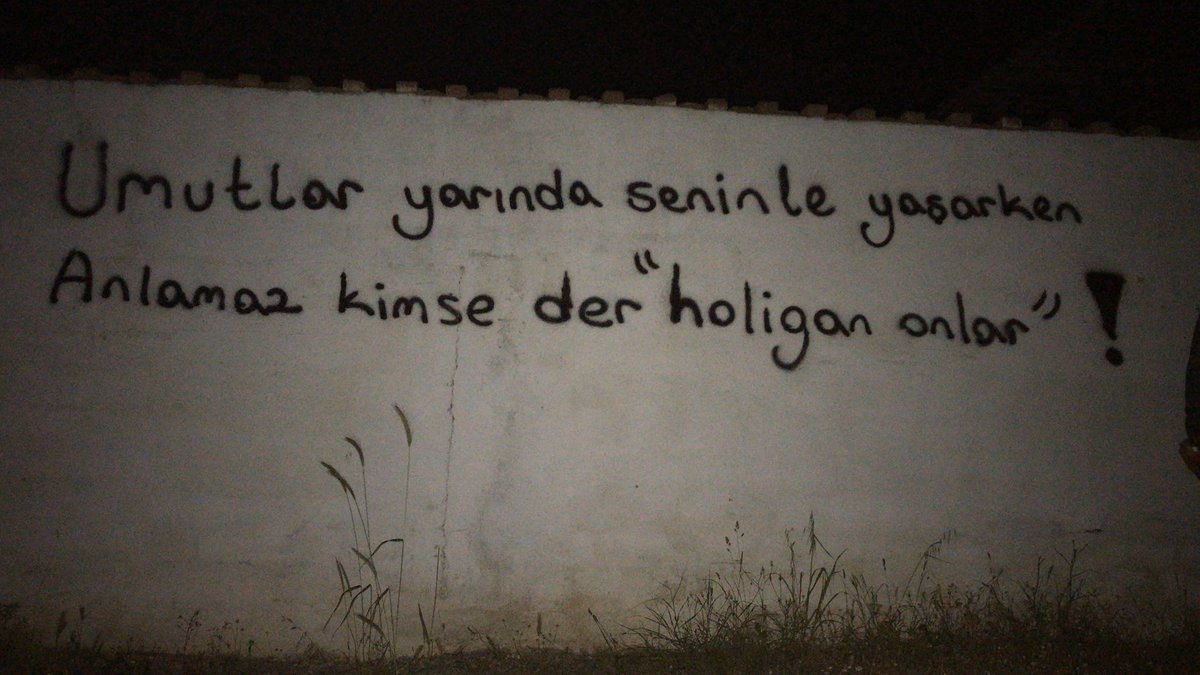 Umutlar yarında seninle yaşarken
Anlamaz kimse der "holigan onlar" !